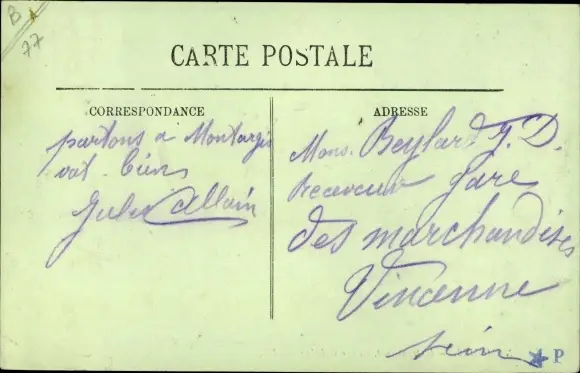 B
77
CARTE POSTALE
CORRESPONDANCE
partons a Montargis
vat. bien
Jules Allain
ADRESSE
Mons. Beylard J. D.
Receveur gare
des marchandises
Vincenne
Seine
P